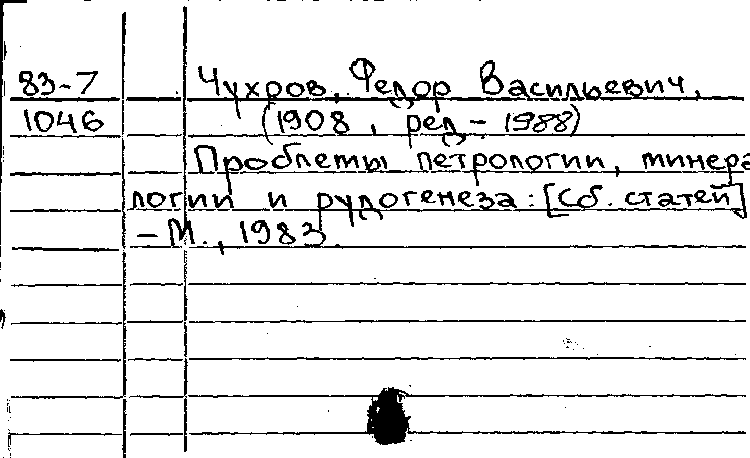 83-7 Чухров, Федор Васильевич,
1046 (1908, ред - 1988)
Проблемы петрологии, минера
логии и рудогенеза: [Сб. статей]
- М., 1983.